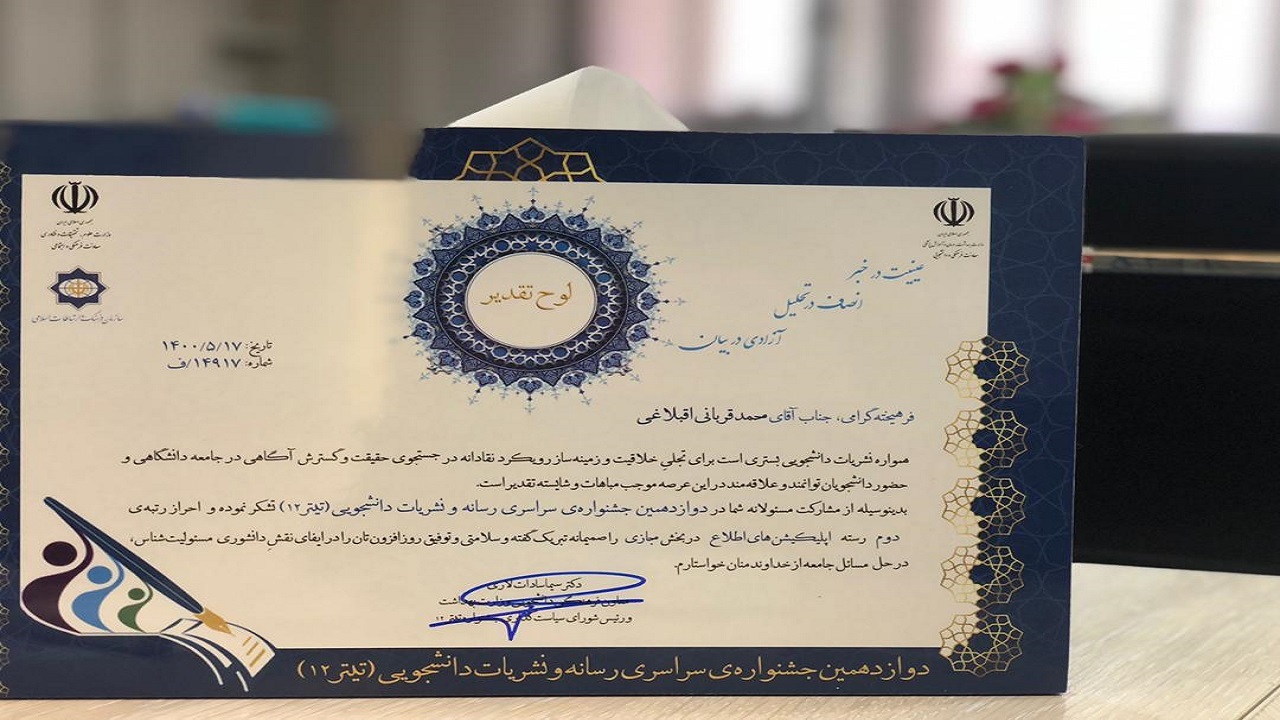 جمهوری اسلامی ایران
وزارت بهداشت، درمان و آموزش پزشکی
معاونت فرهنگی و دانشجویی
جمهوری اسلامی ایران
وزارت علوم، تحقیقات و فناوری
معاونت فرهنگی و اجتماعی
سازمان فرهنگ و ارتباطات اسلامی
عینیت در خبر
انصاف در تحلیل
آزادی در بیان
لوح تقدیر
تاریخ: ۱۴۰۰/۵/۱۷
شماره: ۱۴۹۱۷/ف
فرهیخته گرامی، جناب آقای محمد قربانی اقبلاغی
همواره نشریات دانشجویی بستری است برای تجلی خلاقیت و زمینه‌ساز رویکرد نقادانه در جستجوی حقیقت و گسترش آگاهی در جامعه دانشگاهی و
حضور دانشجویان توانمند و علاقه‌مند در این عرصه موجب مباهات و شایسته تقدیر است.
بدینوسیله از مشارکت مسئولانه شما در دوازدهمین جشنواره‌ی سراسری رسانه و نشریات دانشجویی (تیتر۱۲) تشکر نموده و احراز رتبه‌ی
دوم رسته اپلیکیشن‌های اطلاع در بخش مجازی را صمیمانه تبریک گفته و سلامتی و توفیق روزافزون‌تان را در ایفای نقش دانشوری مسئولیت‌شناس،
در حل مسائل جامعه از خداوند منان خواستارم.
دکتر سیما سادات لاری
معاون فرهنگی و دانشجویی وزارت بهداشت
و رئیس شورای سیاست‌گذاری جشنواره تیتر ۱۲
دوازدهمین جشنواره‌ی سراسری رسانه و نشریات دانشجویی (تیتر۱۲)